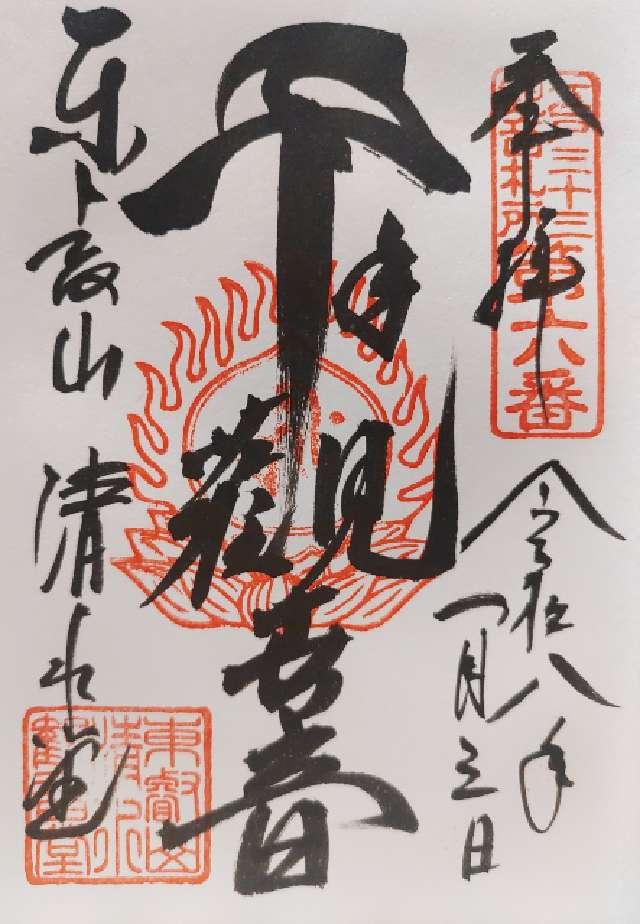 奉拝
令和八年
一月三日
江戸三十三
観音札所第六番
千手観世音
東叡山 清水堂
東叡山
清水
観音堂